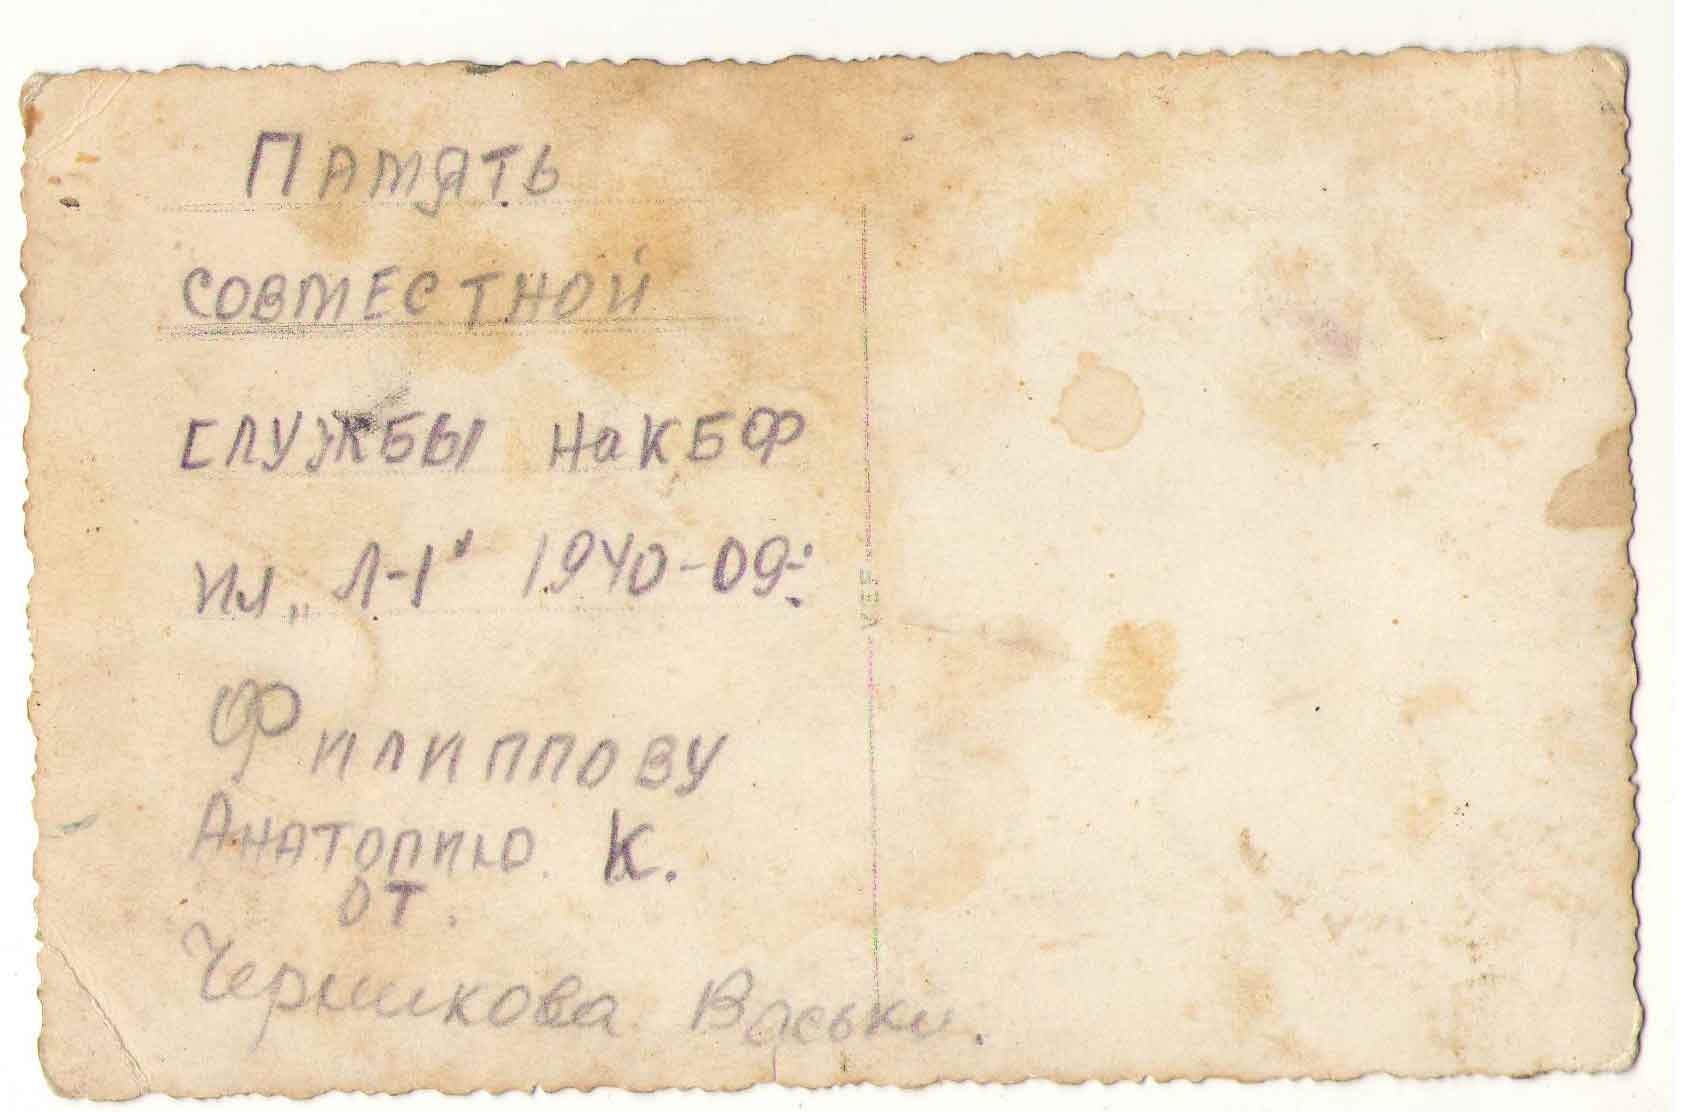 Память
совместной
службы на КБФ
ил „Л-1" 1940-09:
Филиппову
Анатолию К.
от.
Васьки.